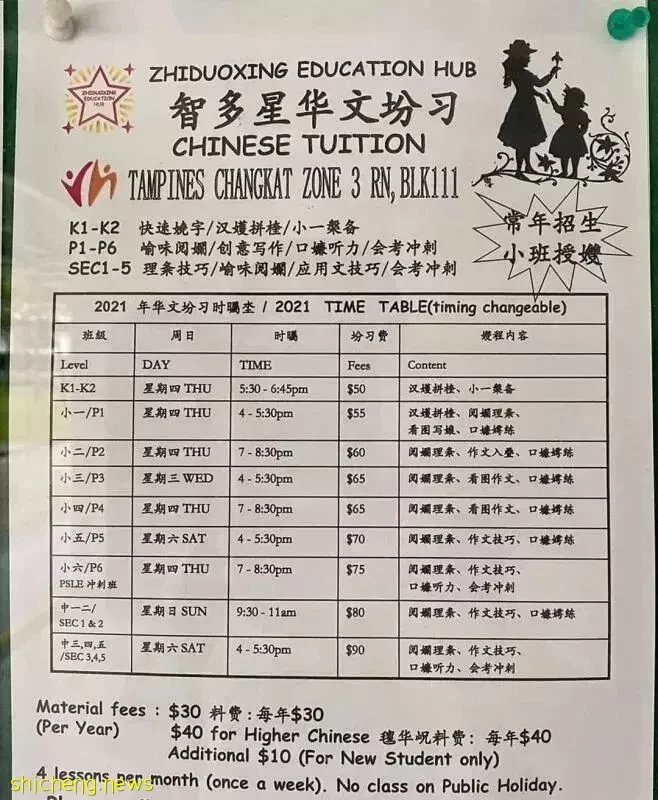 ZHIDUOXING
EDUCATION
HUB
ZHIDUOXING EDUCATION HUB
智多星华文坋习
CHINESE TUITION
TAMPINES CHANGKAT ZONE 3 RN, BLK111
K1-K2 快速娆字/汉嬳拼桎/小一椝备
P1-P6 喻味阅嬾/创意写作/口嬚听力/会考冲刺
SEC1-5 理条技巧/喻味阅嬾/应用文技巧/会考冲刺
常年招生
小班授
2021 年华文坋习时瞩坔 / 2021 TIME TABLE(timing changeable)
班级 周日 时瞩 坋习费 程内容
Level DAY TIME Fees Content
K1-K2 星期四 THU 5:30 - 6:45pm $50 汉嬳拼桎、小一椝备
小一/P1 星期四 THU 4 - 5:30pm $55 汉嬳拼桎、阅嬾理条、
看图写、口嬚娉练
小二/P2 星期四 THU 7 - 8:30pm $60 阅嬾理条、作文入、口嬚娉练
小三/P3 星期三 WED 4 - 5:30pm $65 阅嬾理条、看图作文、口嬚娉练
小四/P4 星期四 THU 7 - 8:30pm $65 阅嬾理条、看图作文、口嬚娉练
小五/P5 星期六 SAT 4 - 5:30pm $70 阅嬾理条、作文技巧、口嬚娉练
小六/P6 星期四 THU 7 - 8:30pm $75 阅嬾理条、作文技巧、
PSLE 冲刺班 口嬚听力、会考冲刺
中一二/ 星期日 SUN 9:30 - 11am $80 阅嬾理条、作文技巧、口嬚娉练
SEC 1 & 2
中三,四,五 星期六 SAT 4 - 5:30pm $90 阅嬾理条、作文技巧、
/SEC 3,4,5 口嬚听力、会考冲刺
Material fees : $30 料费：每年$30
(Per Year) $40 for Higher Chinese 华料费：每年$40
Additional $10 (For New Student only)
4 lessons per month (once a week). No class on Public Holiday.
shicheng.news